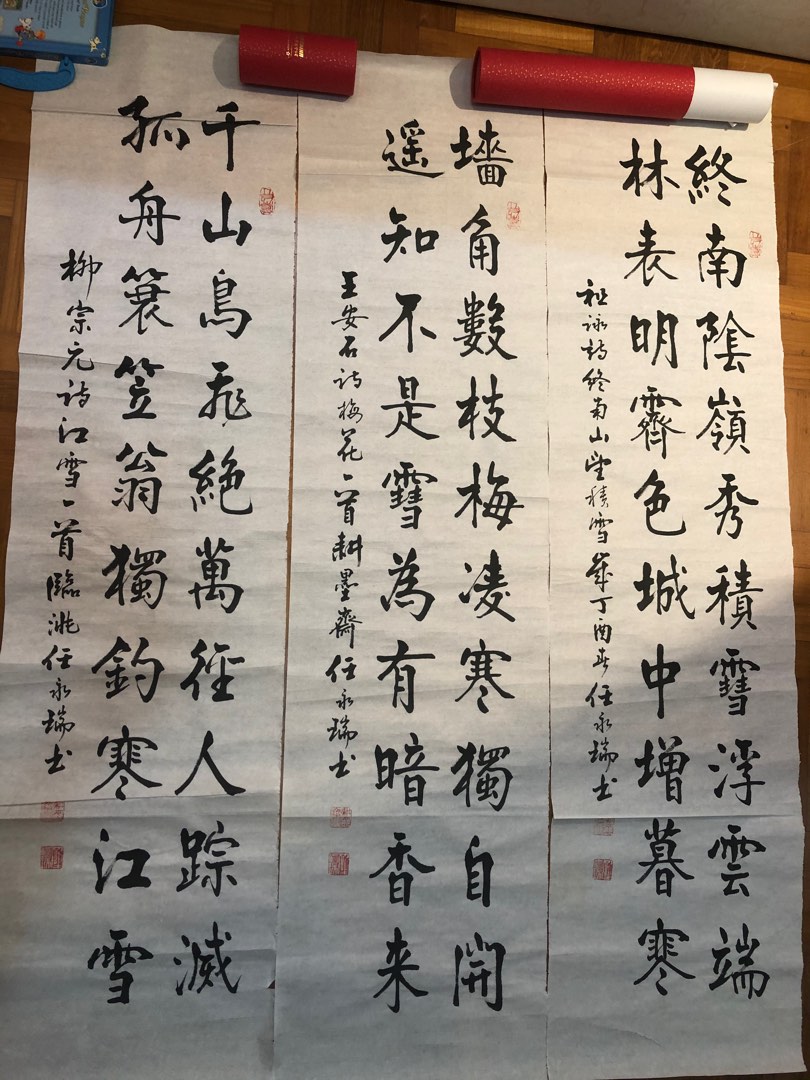 終南陰嶺秀積雪浮雲端
林表明霽色城中增暮寒
祖詠诗終南山望積雪歲丁酉春任永瑞书
墻角數枝梅凌寒獨自開
遥知不是雪為有暗香来
王安石诗梅花一首耕墨齋任永瑞书
千山鳥飛絶萬徑人踪滅
孤舟簑笠翁獨釣寒江雪
柳宗元诗江雪一首臨洮任永瑞书